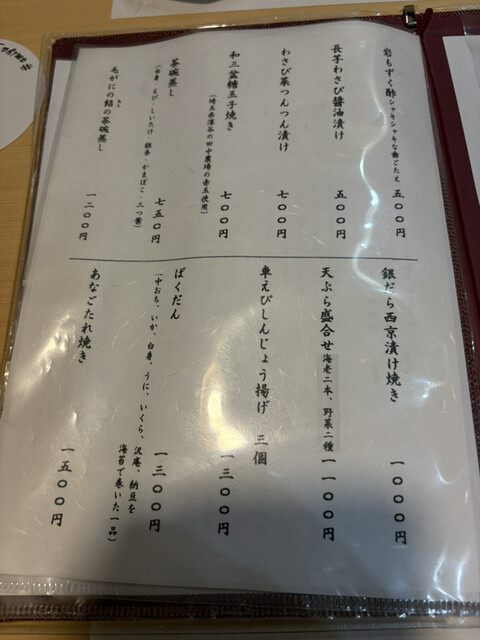 岩もずく酢 シャキシャキな歯ごたえ 五〇〇円
長芋わさび醤油漬け 五〇〇円
わさび菜つんつん漬け 七〇〇円
和三盆糖玉子焼き 七〇〇円
（埼玉県深谷の田中農場の赤玉使用）
茶碗蒸し 七五〇円
（中身 えび・しいたけ・銀杏・かまぼこ・三つ葉）
毛がにの餡の茶碗蒸し 一二〇〇円
あん
銀だら西京漬け焼き 一〇〇〇円
天ぷら盛合せ 海老二本、野菜二種 一一〇〇円
車えびしんじょう揚げ 三個 一三〇〇円
ばくだん 一三〇〇円
（中おち、いか、白身、うに、いくら、
沢庵、納豆を
海苔で巻いた一品）
あなごたれ焼き 一五〇〇円